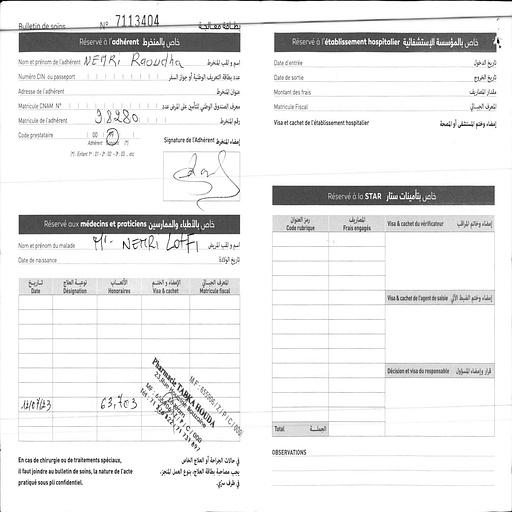 Bulletin de soins N° 7113404 بطاقة معالجة
Réservé à l'adhérent خاص بالمنخرط
Nom et prénom de l'adhérent NEMRI Raoudha اسم و لقب المنخرط
Numéro CIN ou passeport عدد بطاقة التعريف الوطنية أو جواز السفر
Adresse de l'adhérent عنوان المنخرط
Matricule CNAM N°
Matricule de l'adhérent 98280 رقم المنخرط
Code prestataire 00
Adhérent (*)
(*) : Enfant 1er : 01 - 2e : 02 - 3e : 03 ... etc
Signature de l'Adhérent إمضاء المنخرط
Réservé aux médecins et praticiens خاص بالأطباء والممارسين
Nom et prénom du malade Mr. NEMRI LOTFI اسم و لقب المريض
Date de naissance تاريخ الولادة
تاريخ نوعية العلاج الأتعاب الإمضاء و الختم المعرف الجبائي
Date Désignation Honoraires Visa & cachet Matricule fiscal
12/07/23 63,703
Pharmacie TABKA HOUDA
En cas de chirurgie ou de traitements spéciaux,
il faut joindre au bulletin de soins, la nature de l'acte
pratiqué sous pli confidentiel.
في حالات الجراحة أو العلاج الخاص
يجب مصاحبة بطاقة العلاج، بنوع العمل المنجز،
في ظرف سري.
Réservé à l'établissement hospitalier خاص بالمؤسسة الإستشفائية
Date d'entrée تاريخ الدخول
Date de sortie تاريخ الخروج
Montant des frais مقدار المصاريف
Matricule Fiscal المعرف الجبائي
Visa et cachet de l'établissement hospitalier إمضاء وختم المستشفى أو المصحة
Réservé à la STAR خاص بتأمينات ستار
رمز العنوان المصاريف
Code rubrique Frais engagés
Visa & cachet du vérificateur إمضاء وخاتم المراقب
Visa & cachet de l'agent de saisie إمضاء وختم الضبط الآلي
Décision et visa du responsable قرار وإمضاء المسؤول
Total الجملة
OBSERVATIONS